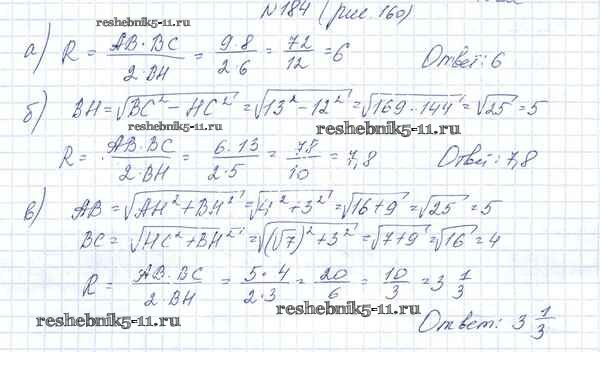 №184 (рис. 160)
reshebnik5-11.ru
а) R = AB·BC / 2·BH = 9·8 / 2·6 = 72 / 12 = 6 Ответ: 6
б) BH = √BC² − HC² = √13² − 12² = √169 · 144 = √25 = 5
reshebnik5-11.ru
R = AB·BC / 2·BH = 6·13 / 2·5 = 78 / 10 = 7,8 Ответ: 7,8
в) AB = √AH² + BH² = √4² + 3² = √16 + 9 = √25 = 5
BC = √HC² + BH² = √(√7)² + 3² = √7+9 = √16 = 4
R = AB·BC / 2·BH = 5·4 / 2·3 = 20 / 6 = 10 / 3 = 3 1/3
reshebnik5-11.ru reshebnik5-11.ru
Ответ: 3 1/3